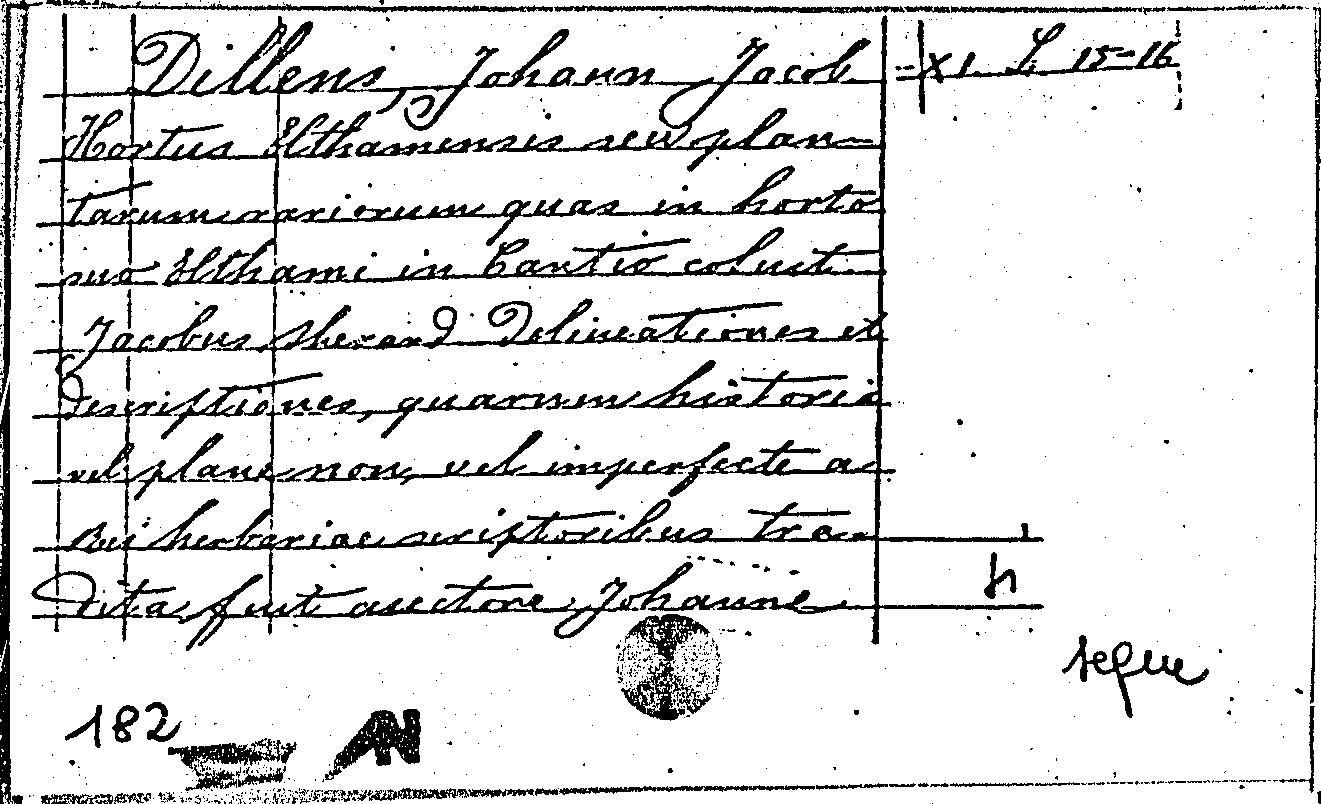 Dillens, Johann Jacob XI. L 15-16
Hortus Elthamensis seu plan-
tarum rariorum quas in horto
suo Elthami in Cantio coluit
Jacobus Sherard Delineationes et
Descriptiones, quarum historia
vel plane non, vel imperfecte a
rei herbariae scriptoribus tra-
dita fuit auctore Johanne
segue
182